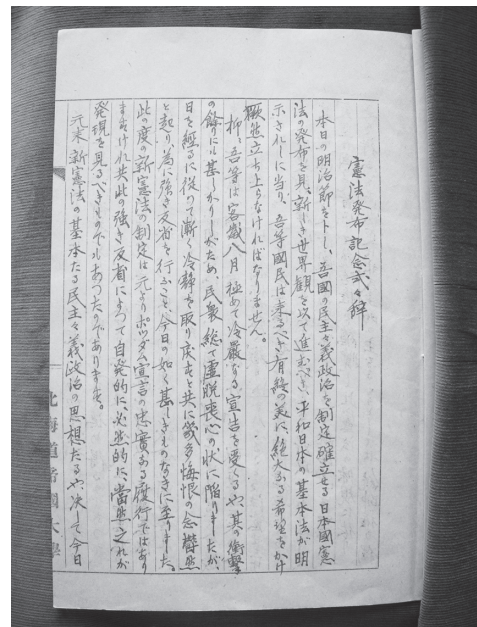 憲法発布記念式々辞
本日の明治節を卜し、吾國の民主々義政治を制定確立せる日本國憲
法の発布を見、新しき世界観を以て進むべき平和日本の基本法が明
示されしに当り、吾等國民は来るべき有終の美に、絶大なる希望をかけ
蹶然立ち上らなければなりません。
抑々吾等は客歳八月極めて冷厳なる宣告を受くるや、其の衝撃
の餘りにも甚しかりしがため、民衆総て虚脱喪心の状に陥りましたが、
日を経るに従つて漸く冷静を取り戻すと共に幾多悔恨の念勃然
と起り為に強き反省を行ふこと、今日の如く甚しきものなきに至りました。
此の度の新憲法の制定は元よりポツダム宣言の忠實なる履行ではあり
ますけれ共此の強き反省によつて自発的に必然的に、當然之れが
発現を見るべきものでもあつたのであります。
元来新憲法の基本たる民主々義政治の思想たるや決して今日
北海道